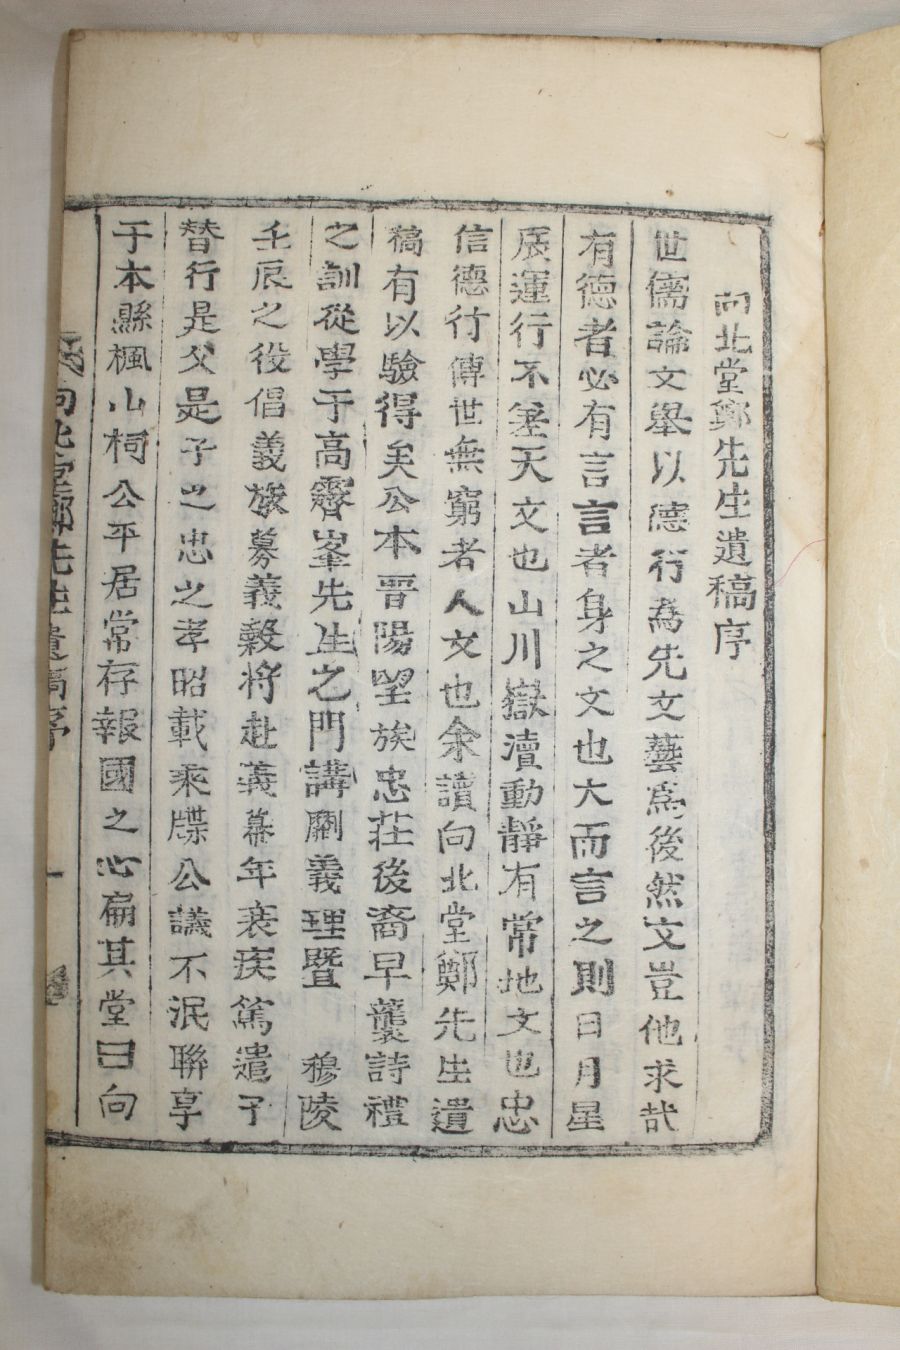 向北堂鄭先生遺稿序
世儒論文擧以德行為先文藝爲後然文豈他求哉
有德者必有言言者身之文也大而言之則日月星
辰運行不差天文也山川嶽瀆動靜有常地文也忠
信德行傳世無窮者人文也余讀向北堂鄭先生遺
稿有以驗得矣公本晋陽望族忠莊後裔早襲詩禮
之訓從學于高霽峯先生之門講劘義理暨 穆陵
壬辰之役倡義旅募義穀將赴義幕年衰疾篤遣子
替行是父是子之忠之孝昭載乘牒公議不泯聯享
于本縣楓山祠公平居常存報國之心扁其堂曰向
向北堂鄭先生遺稿序
一